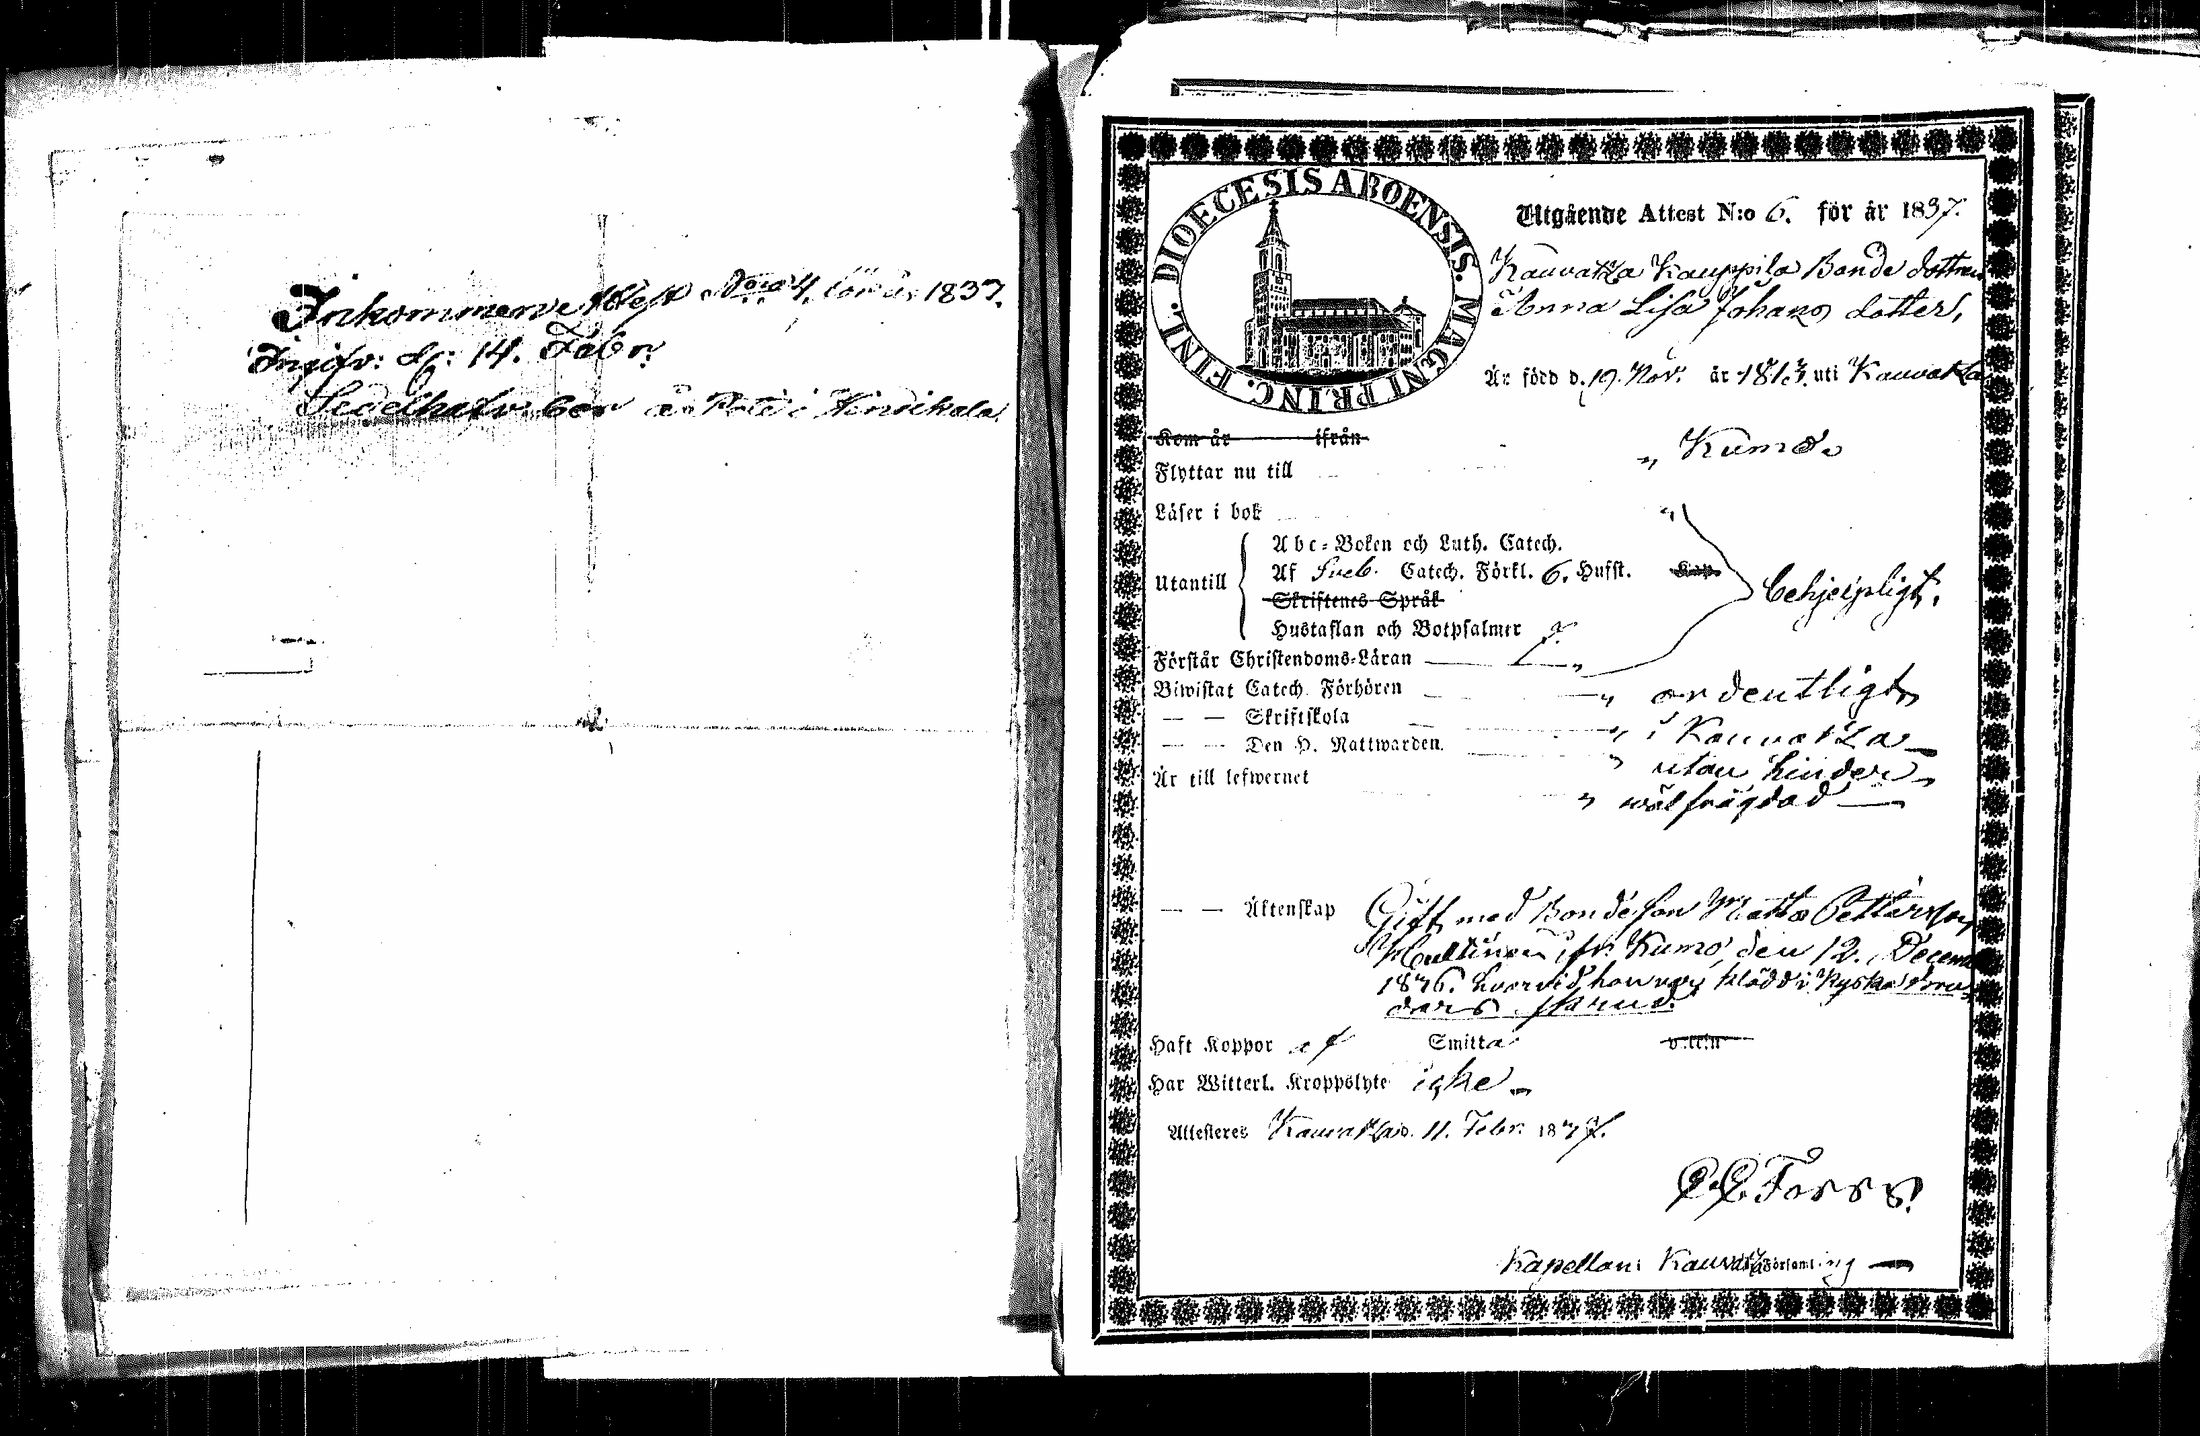 Inkommande Attest N:o 4. för år 1837.
d: 14. Febr:
Sedelhafvaren är i
DIOECESIS ABOENSIS. MAGNI PRINC. FINL.
Utgående Attest N:o 6. för år 1837.
Kauvatza Kauppila Bonde dottren
Anna Lisa Johans dotter,
Är född d. 19. Nov: år 1813. uti Kauvatza
Kom år ifrån
Flyttar nu till „ Kumo
Läser i bok „
Abc-Boken och Luth. Catech.
Utantill Af Sveb. Catech. Förkl. 6. Hufst. Kap. behjelpligt.
Skriftenes Språk
Hustaflan och Botpsalmer
Förstår Christendoms-Läran „
Biwistat Catech. Förhören „ ordentligt
— — Skriftskola „ i Kauvatza
— — Den H. Nattwarden. „ utan hinder
Är till lefwernet „ wälfrägdad
— — Äktenskap Gift med Bondeson Matts Pettersson
ifr: Kumo den 12. Decemb
1836. hvarvid hon var klädd i Kyska Bru
dars skrud.
Haft Koppor af Smitta
Har Witterl. Kroppslyte icke
Attesteres Kauvatza d. 11. Febr: 1837.
Forss
Kapellan i Kauvatza Församling